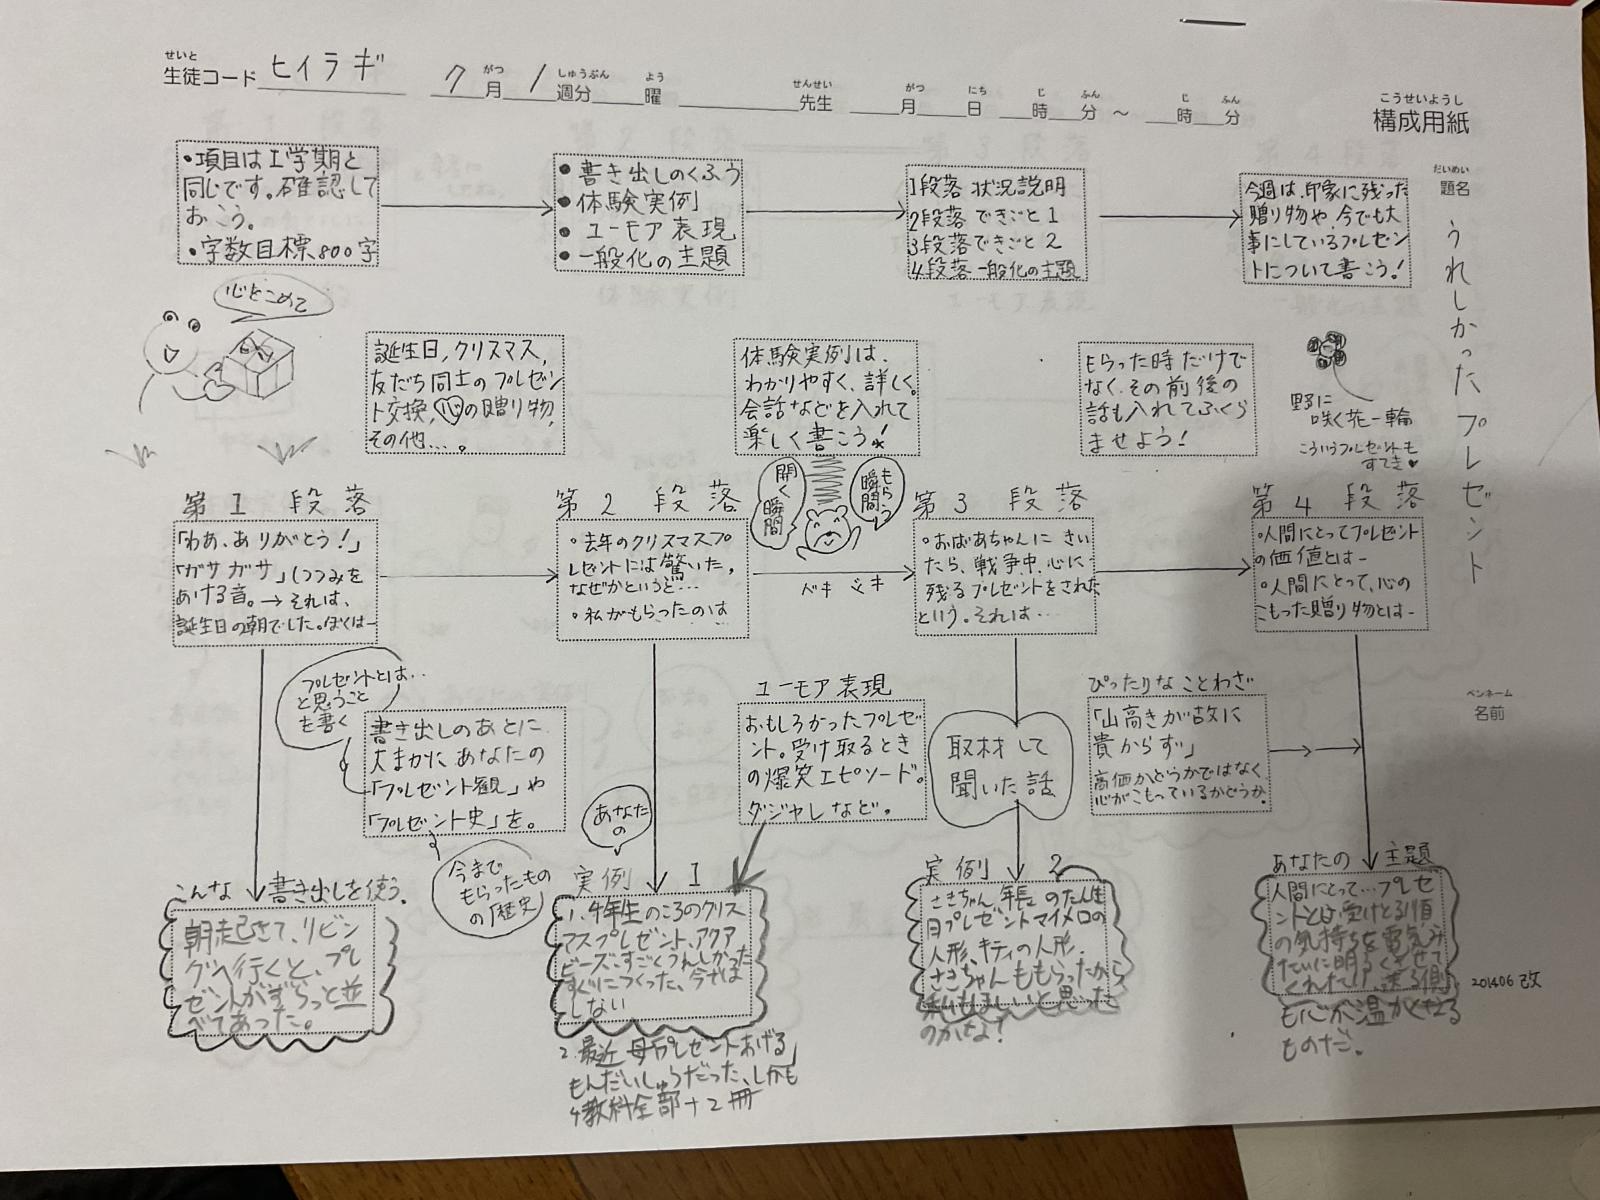 せいと
生徒コード ヒイラギ 7月 がつ 1週分 しゅうぶん 曜 よう 先生 せんせい 月 がつ 日 にち 時 じ 分 ふん ～ 時 じ 分 ふん
こうせいようし
構成用紙
だいめい
題名
うれしかったプレゼント
・項目は1学期と
同じです。確認して
おこう。
・字数目標、800字
・書き出しのくふう
・体験実例
・ユーモア表現
・一般化の主題
1段落 状況説明
2段落 できごと1
3段落 できごと2
4段落 一般化の主題
今週は、印象に残った
贈り物や、今でも大
事にしているプレゼン
トについて書こう！
心をこめて
誕生日、クリスマス、
友だち同士のプレゼン
ト交換、心の贈り物、
その他…。
体験実例は、
わかりやすく、詳しく。
会話などを入れて
楽しく書こう！
もらった時だけで
なく、その前後の
話も入れてふくら
ませよう！
野に
咲く花一輪
こういうプレゼントも
すてき♥
第1段落
「わあ、ありがとう！」
「ガサガサ」つつみを
あける音。→それは、
誕生日の朝でした。ぼくは―
第2段落
・去年のクリスマスプ
レゼントには驚いた。
なぜかというと…
・私がもらったのは
開く瞬間
もらう瞬間
ドキ ドキ
第3段落
・おばあちゃんにきい
たら、戦争中、心に
残るプレゼントをされた
という。それは…
第4段落
・人間にとってプレゼント
の価値とは―
・人間にとって、心の
こもった贈り物とは―
プレゼントとは…
と思うこと
を書く
書き出しのあとに
大まかにあなたの
「プレゼント観」や
「プレゼント史」を。
今まで
もらったもの
の「歴史」
あなた
の
ユーモア表現
おもしろかったプレゼ
ント。受け取るとき
の爆笑エピソード。
ダジャレなど。
取材して
聞いた話
ぴったりなことわざ
「山高きが故に
貴からず」
高価かどうかではなく
心がこもっているかどうか。
ペンネーム
名前
こんな書き出しを使う。
朝起きて、リビン
グへ行くと、プレ
ゼントがずらっと並
べてあった。
実例 1
1.4年生のころのクリス
マスプレゼント、アクア
ビーズ、すごくうれしかった
すぐにつくった、今では
しない
2.最近 母「プレゼントあげる」
もんだいしゅうだった、しかも
4教科全部+2冊
実例 2
さきちゃん 年長 のたん生
日プレゼントマイメロの
人形、キティの人形、
さきちゃんももらったから
私いもほしいと思った
のかな？
あなたの 主題
人間にとって…プレゼ
ントとは受けとる側
の気持ちを電気み
たいに明るくさせて
くれたり、送る側
も心が温かくなる
ものだ。
201406 改